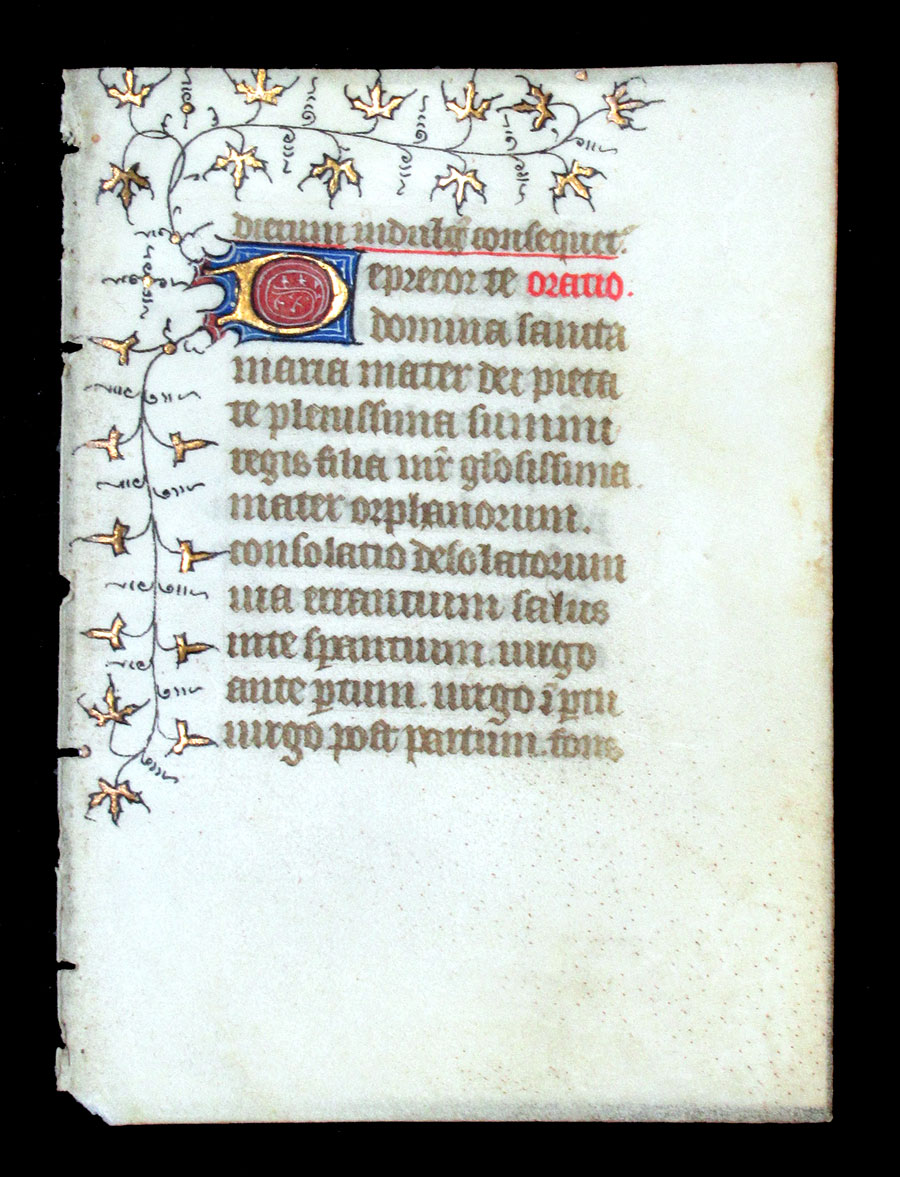 dierum indulg consequet.
Deprecor te oratio.
domina sancta
maria mater dei pieta
te plenissima summi
regis filia mr̄ gl̄osissima
mater orphanorum.
consolatio desolatorum
uia errantium salus
in te sperantium. uirgo
ante ꝑtum. uirgo ī ꝑtu
uirgo post partum. fons